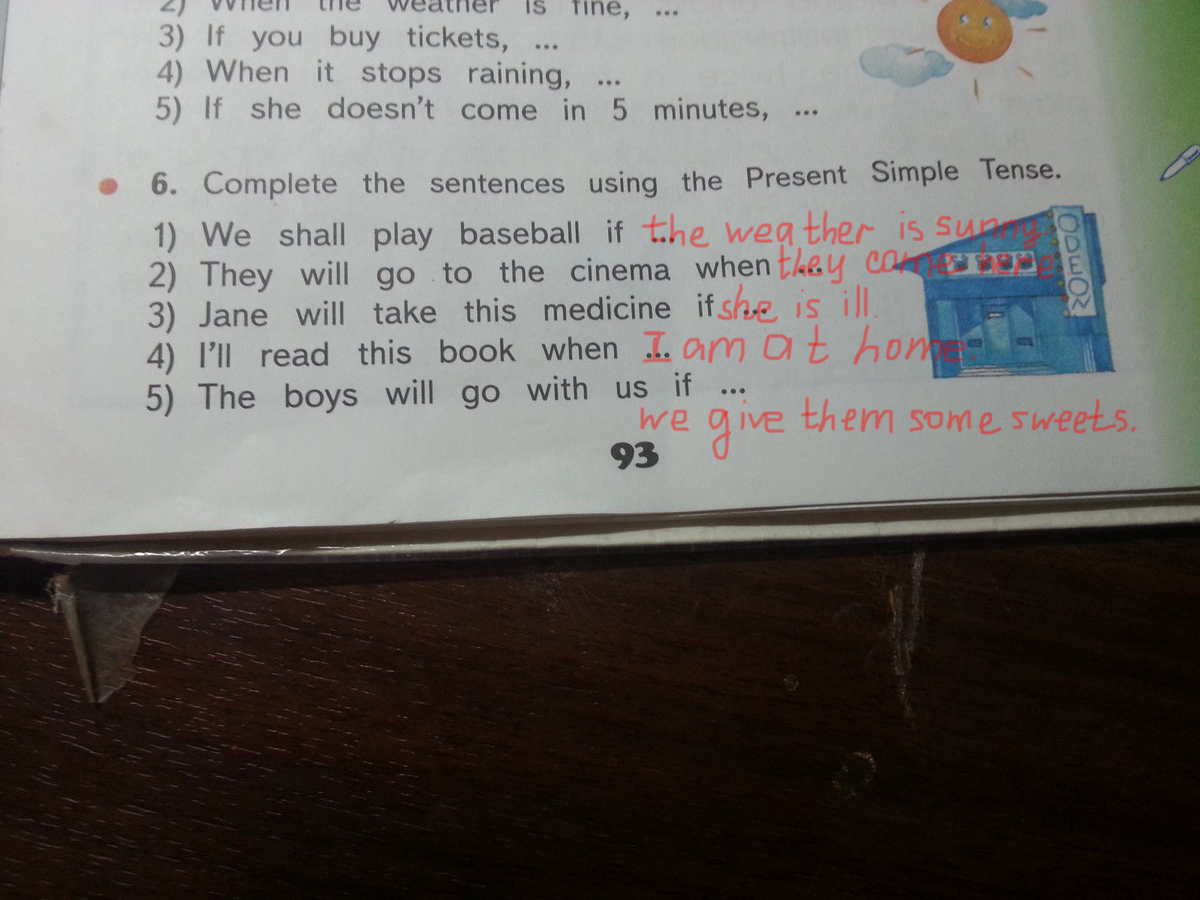 2) When the weather is fine, ...
3) If you buy tickets, ...
4) When it stops raining, ...
5) If she doesn't come in 5 minutes, ...
6. Complete the sentences using the Present Simple Tense.
1) We shall play baseball if ... the weather is sunny.
2) They will go to the cinema when ... they come here
3) Jane will take this medicine if ... she is ill.
4) I'll read this book when ... I am at home.
5) The boys will go with us if ...
we give them some sweets.
ODEON
93